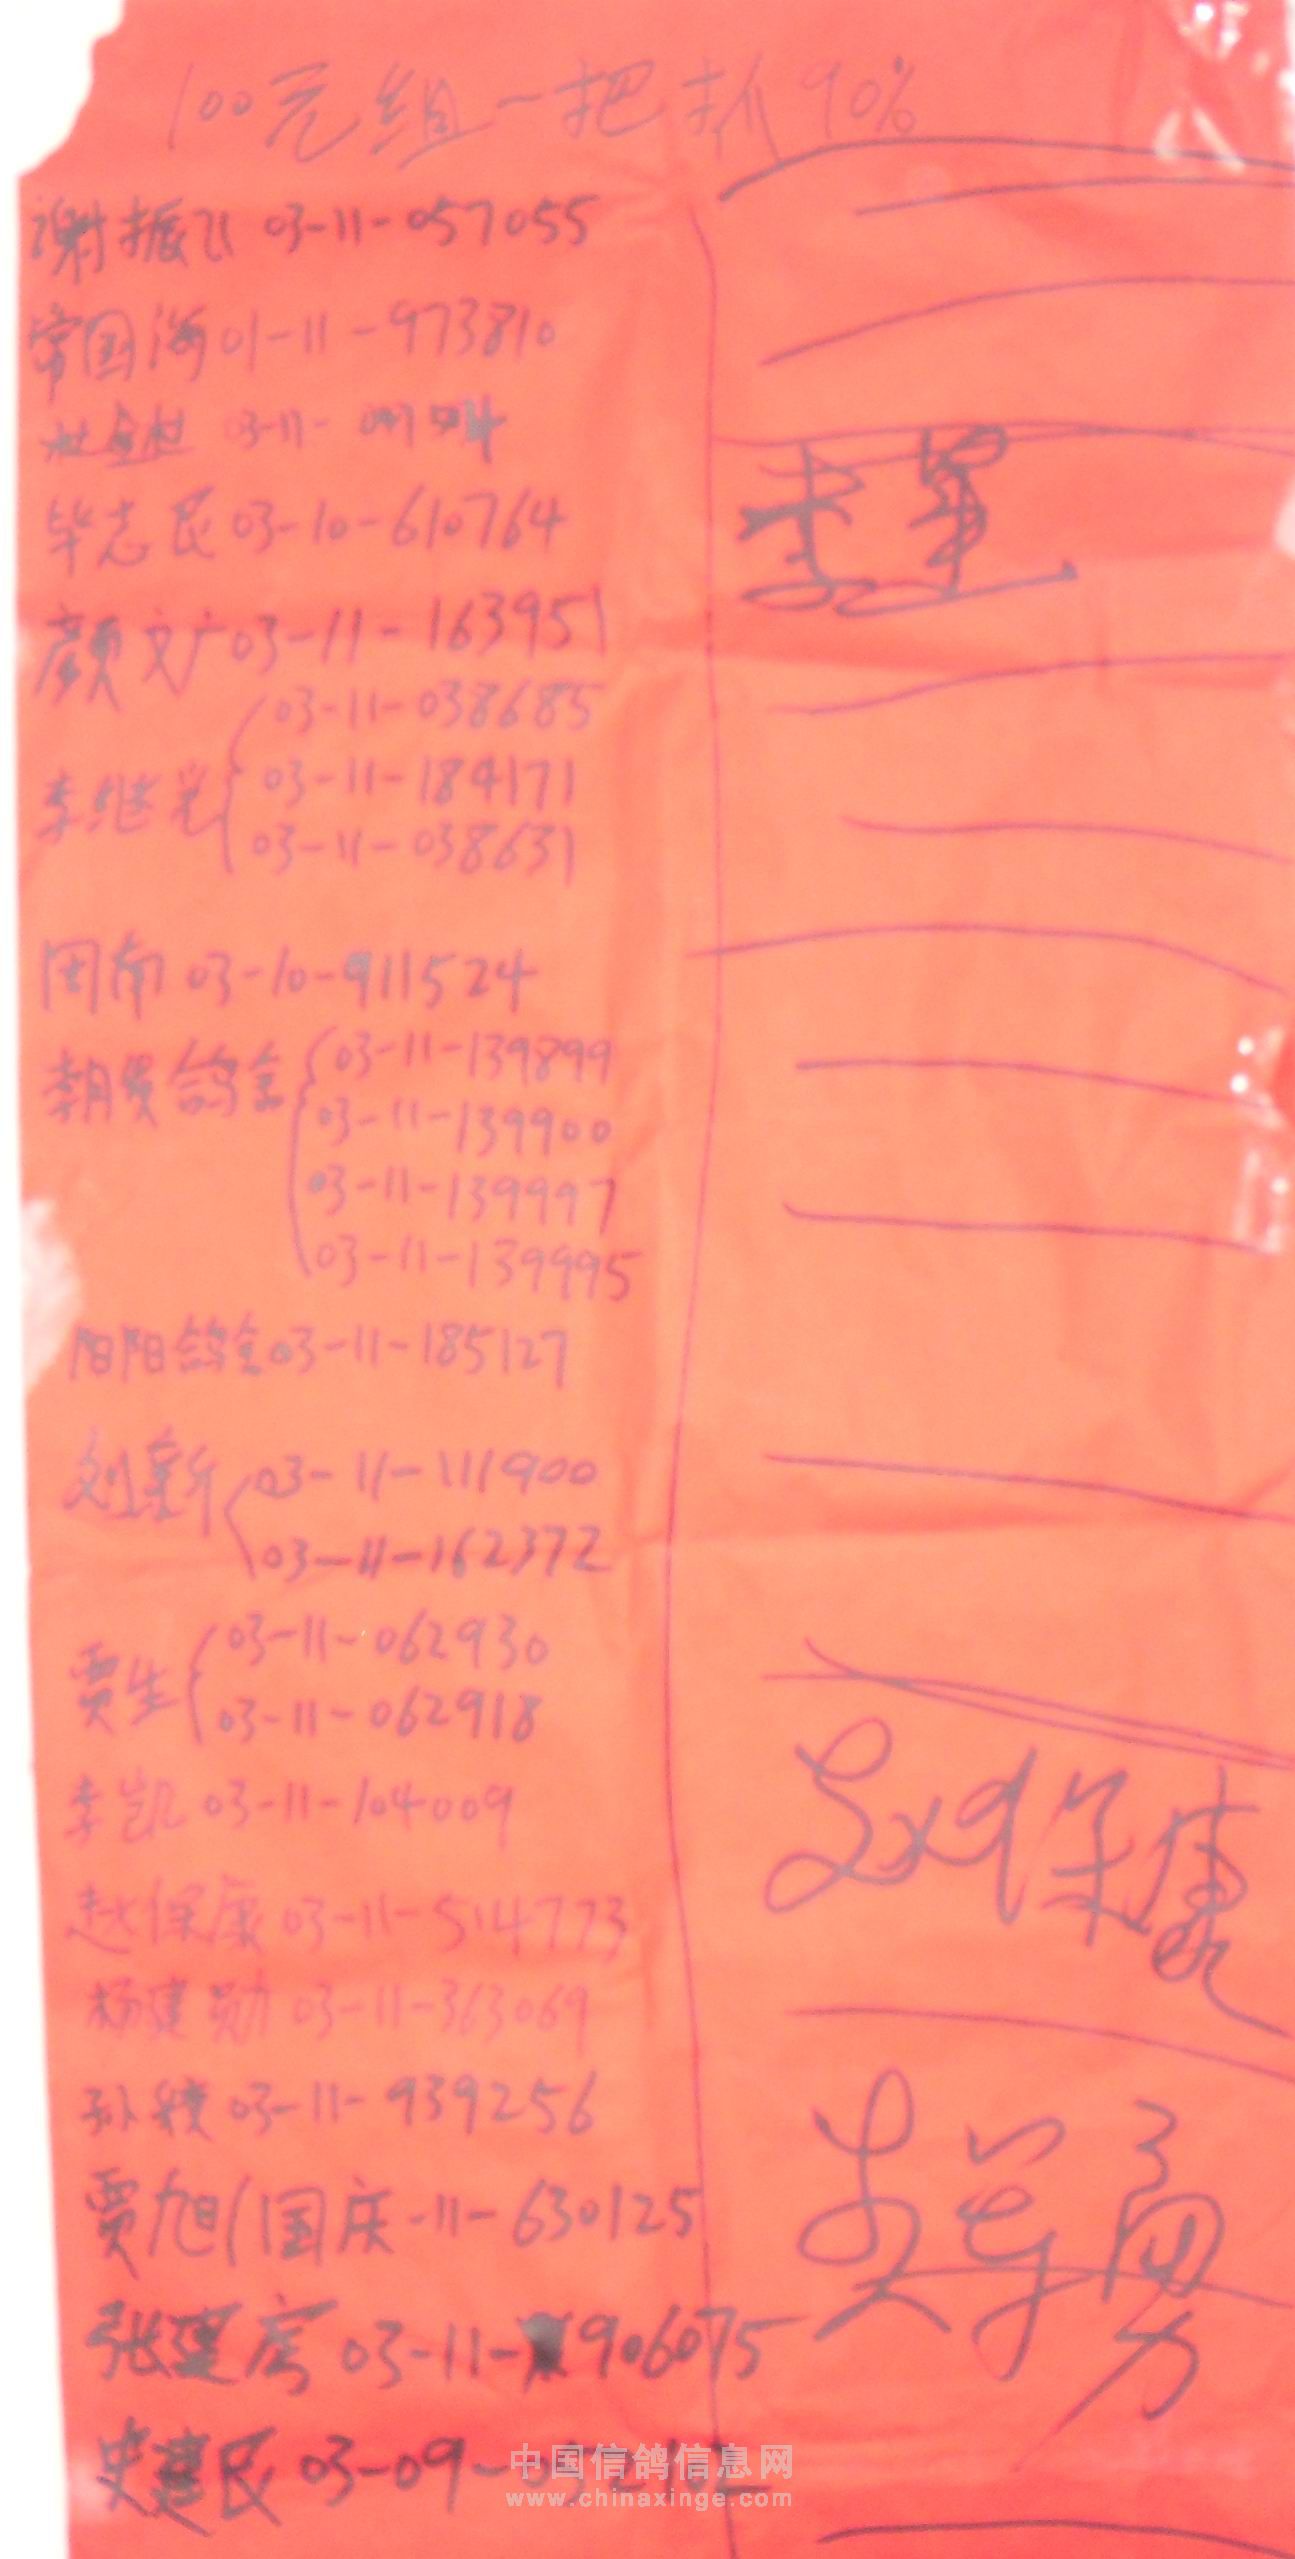 100元组一把抓90%
谢振飞 03-11-057055
常国海 01-11-973810
03-11-
李军
毕志民 03-10-610764
颜文广 03-11-163951
03-11-038685
李继光 03-11-184171
03-11-038631
田南 03-10-911524
鸽舍 03-11-139899
03-11-139900
03-11-139997
03-11-139995
阳阳鸽舍 03-11-185127
刘新 03-11-111900
03-11-162372
贾生 03-11-062930
03-11-062918
李凯 03-11-104009
赵保康 03-11-514773
保康
杨建勋 03-11-363069
孙 03-11-939256
贾旭(国庆-11-630125
张建 03-11-906075
史建民 03-09-
中国信鸽信息网
www.chinaxinge.com